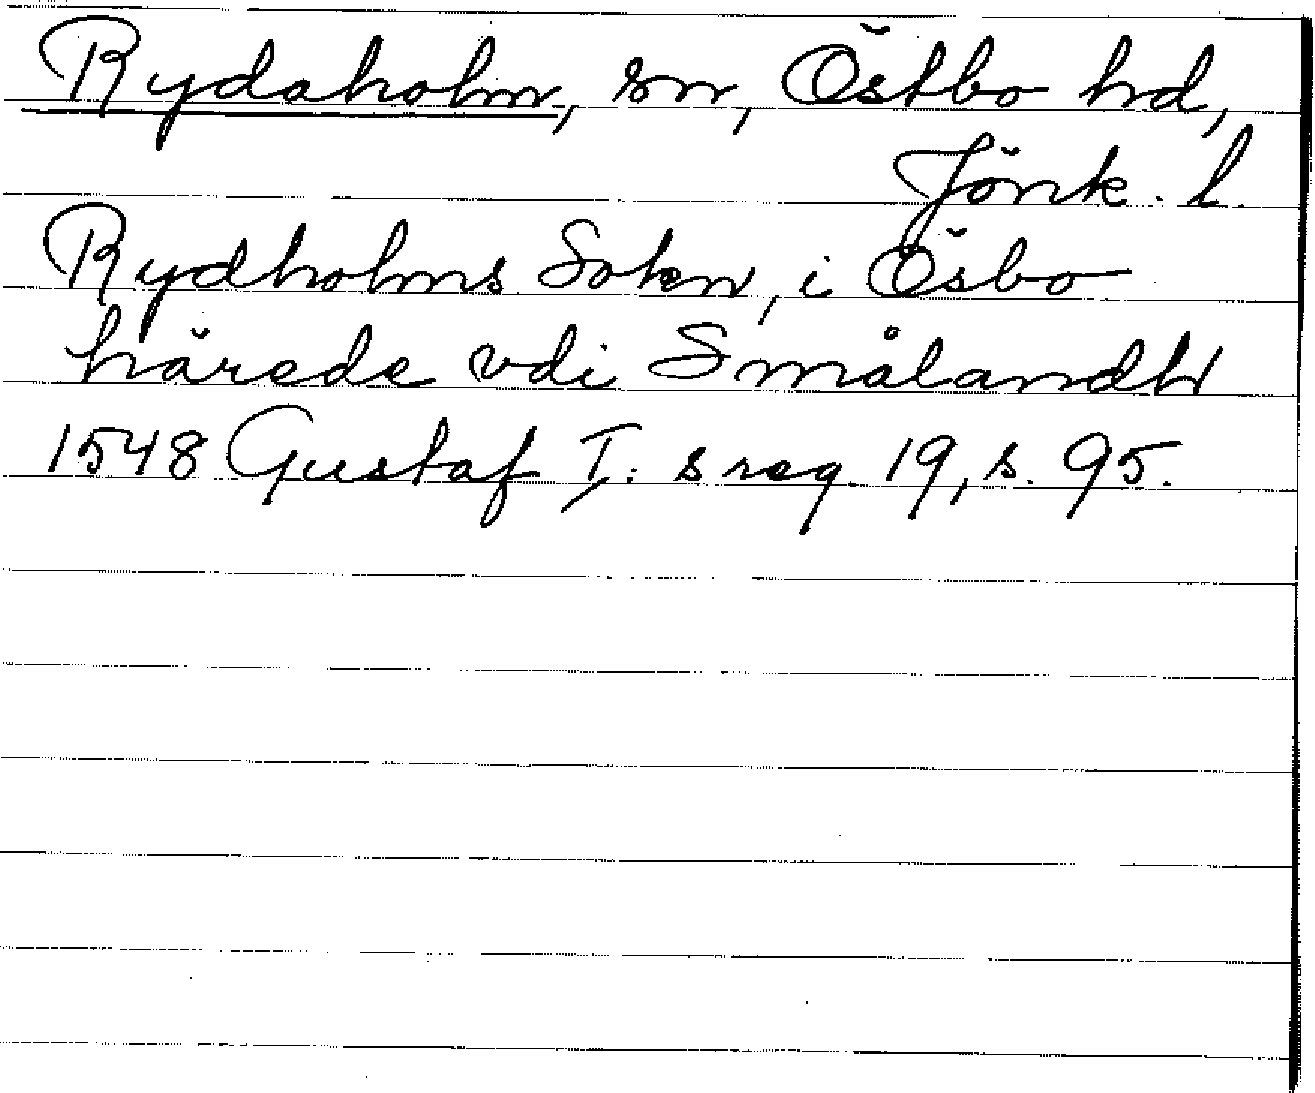 Rydaholm, sn, Östbo hd,
Jönk. l.
Rydholms Soken, i Ösbo
härede vdi Smålandh
1548 Gustaf I: s reg. 19, s. 95.